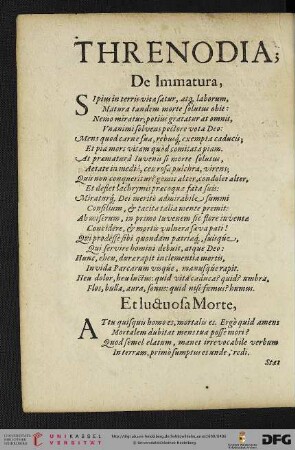 THRENODIA,
De Immatura,
SI pius in terris vita satur, atq. laborum,
Matura tandem morte solutus obit:
Nemo miratur: potius gratatur at omnis,
Vnanimi solvens pectore vota Deo:
Mens quod carne sua, rebusq; exempta caducis;
Et pia mors vitam quod comitata piam.
At praematurâ Iuvenis si morte solutus,
Aetate in mediâ, ceu rosa pulchra, virens;
Quis non conqueritur? gemit alter, condolet alter,
Et deflet lachrymis praecoqua fata suis:
Miratur Dei meritò admirabile summi
Consilium, & tacita talia mente premit:
Ah miserum, in primo Iuvenem sic flore iuventae
Concidere, & mortis vulnera saeva pati!
Qui prodesse sibi quondam patriaeq;, suisque,
Qui servire homini debuit, atque Deo:
Hunc, eheu, dura rapit inclementia mortis,
Invida Parcarum unque, manusque rapit.
Heu dolor, heu luctus: quid vita caduca? quid? umbra,
Flos, bulla, aura, sonus: quid nisi fumus? humus.
Et luctuosa Morte,
AT tu quisquis homo es, mortalis es. Ergò quid amens
Mortalem dubitat mens tua posse mori?
Quod semel elatum, manet irrevocabile verbum
In terram, primò sumptus es unde, redi.
Stat
UNIKASSEL
VERSITÄT
DFG